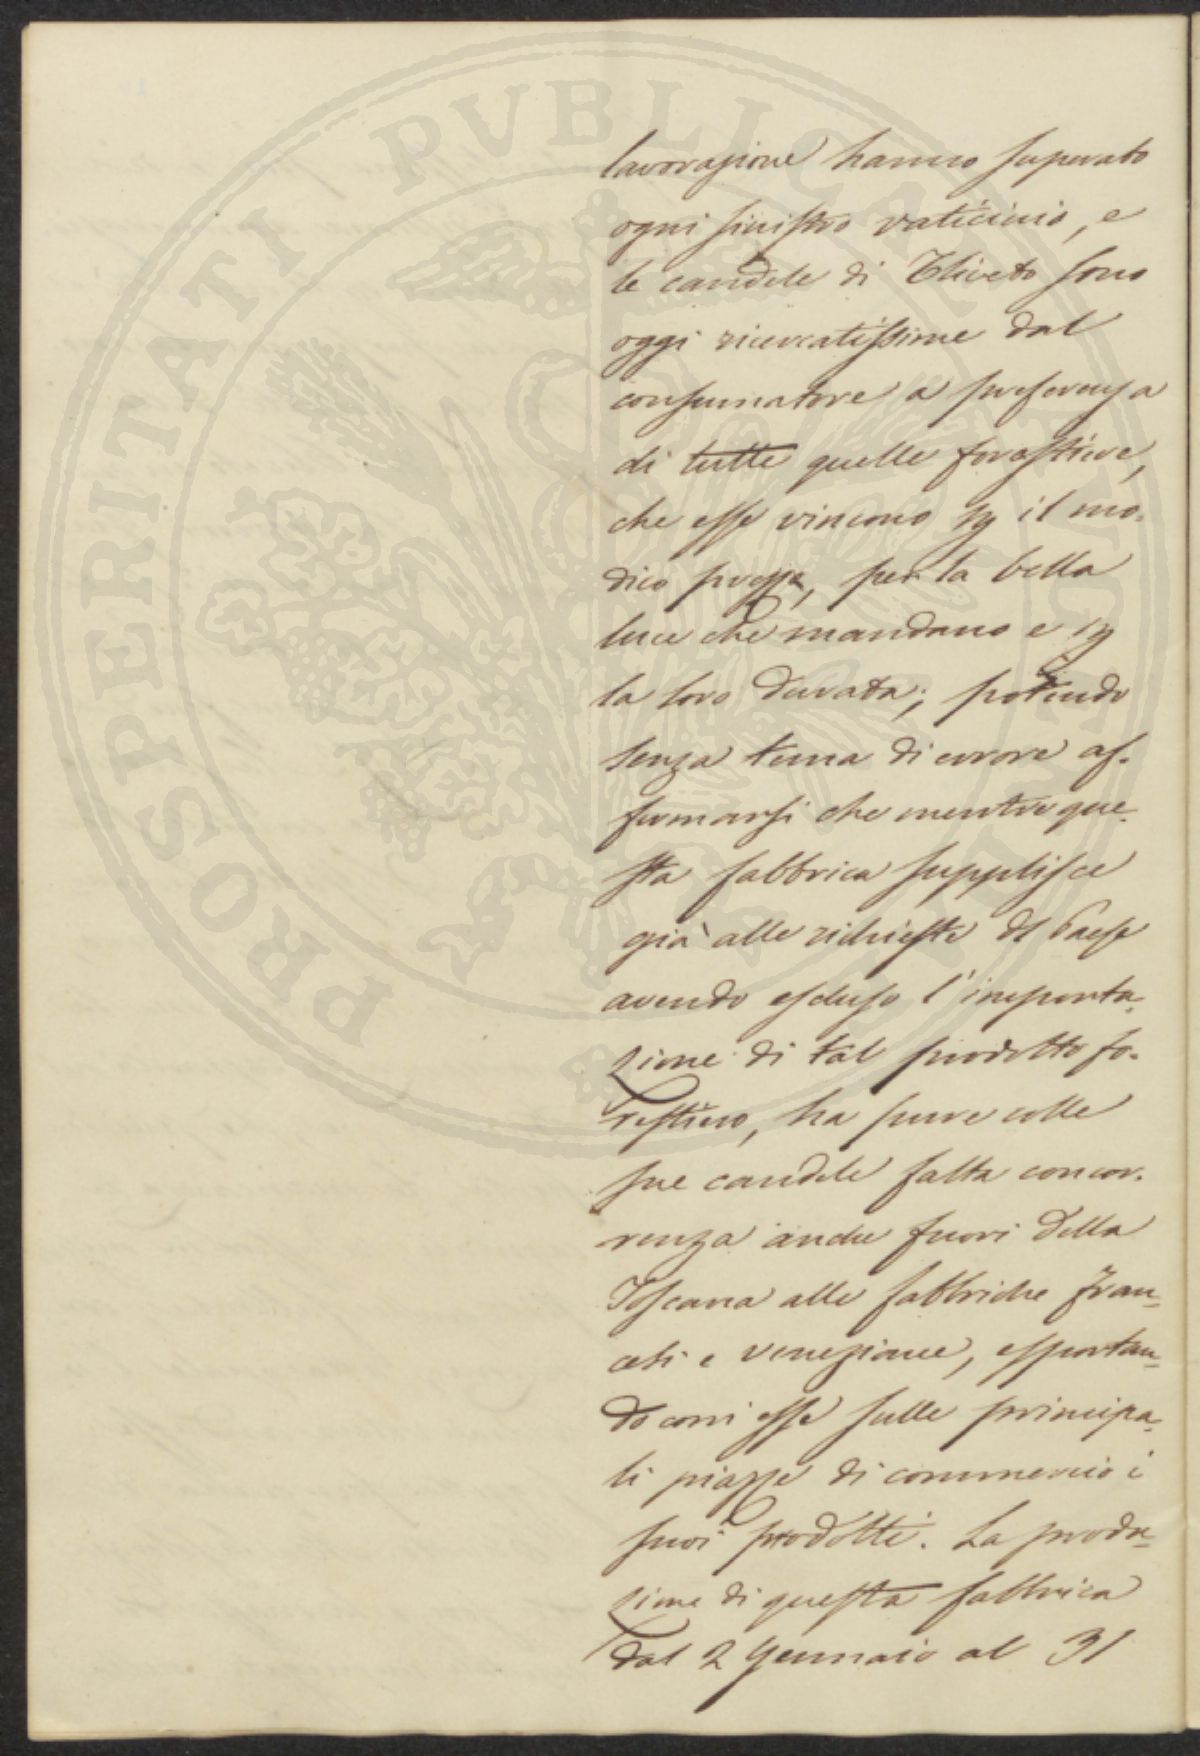 PROSPERITATI PUBLICAE AUGENDAE
lavorazione hanno superato
ogni sinistro vaticinio, e
le candele di Oliveto sono
oggi ricercatissime dal
consumatore a preferenza
di tutte quelle forastiere,
che esse vincono p il mo-
dico prezzo, per la bella
luce che mandano e p
la loro durata; potendo
senza tema di errore af-
fermarsi che mentre que-
sta fabbrica supplisce
già alle richieste del Paese
avendo escluso l'importa-
zione di tal prodotto fo-
restiero, ha pure colle
sue candele fatta concor-
renza anche fuori della
Toscana alle fabbriche fran-
cesi e veneziane, esportan-
do con esse sulle principa-
li piazze di commercio i
suoi prodotti. La produ-
zione di questa fabbrica
dal 2 Gennaio al 31